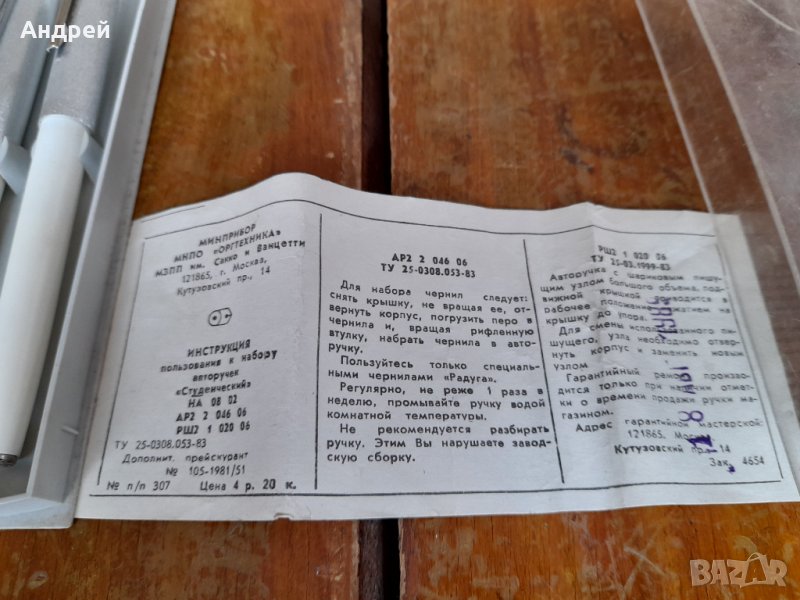 Андрей
МИНПРИБОР
МНПО «ОРГТЕХНИКА»
МЗПП им. Сакко и Ванцетти
121865, г. Москва,
Кутузовский пр., 14
ИНСТРУКЦИЯ
пользования к набору
авторучек
«Студенческий»
НА 08 02
АР2 2 046 06
РШ2 1 020 06
ТУ 25-0308.053-83
Дополнит. прейскурант
№ 105-1981/51
№ п/п 307 Цена 4 р. 20 к.
АР2 2 046 06
ТУ 25-0308.053-83
Для набора чернил следует:
снять крышку, не вращая ее, от-
вернуть корпус, погрузить перо в
чернила и, вращая рифленную
втулку, набрать чернила в авто-
ручку.
Пользуйтесь только специаль-
ными чернилами «Радуга».
Регулярно, не реже 1 раза в
неделю, промывайте ручку водой
комнатной температуры.
Не рекомендуется разбирать
ручку. Этим Вы нарушаете завод-
скую сборку.
РШ2 1 020 06
ТУ 25-03.1999-83
Авторучка с шариковым пишу-
щим узлом большого объема, под-
вижной крышкой приводится в
рабочее положение нажатием на
крышку до упора.
Для смены использованного пи-
шущего узла необходимо отвер-
нуть корпус и заменить новым
узлом
Гарантийный ремонт произво-
дится только при наличии отмет-
ки о времени продажи ручки ма-
газином.
Адрес гарантийной мастерской:
121865, Москва
Кутузовский пр., 14
Зак. 4654
BAZAR